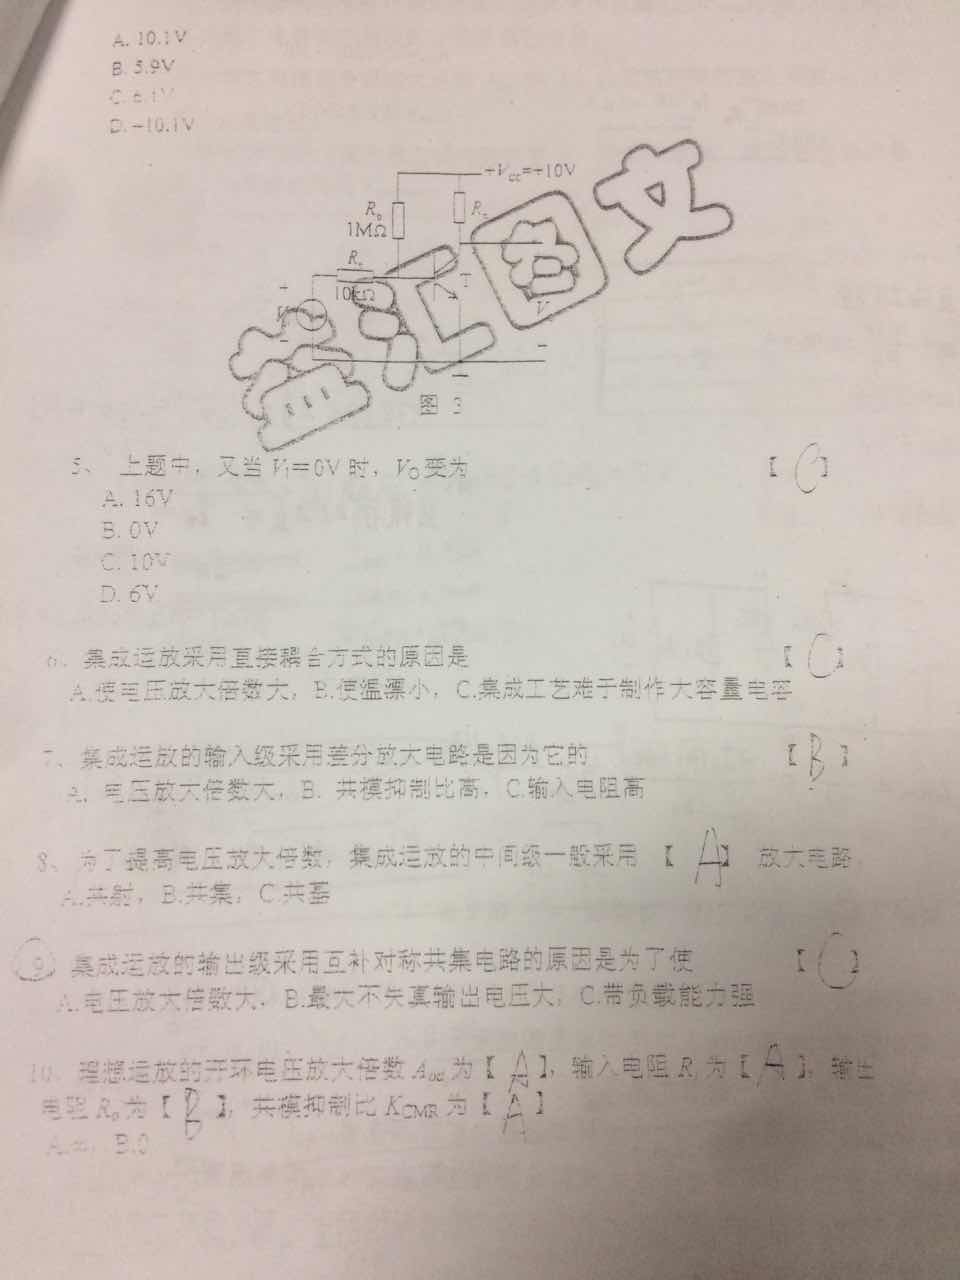 A. 10.1V
B. 5.9V
C. 6.1V
D. -10.1V
+Vcc=+10V
Rb
1MΩ
Rc
Rs
10kΩ
T
V
图 3
荟汇图文
5、 上题中，又当 Vi=0V 时，VO变为 【 C 】
A. 16V
B. 0V
C. 10V
D. 6V
6、集成运放采用直接耦合方式的原因是 【 C 】
A.使电压放大倍数大，B.使温漂小，C.集成工艺难于制作大容量电容
7、集成运放的输入级采用差分放大电路是因为它的 【 B 】
A. 电压放大倍数大，B. 共模抑制比高，C.输入电阻高
8、为了提高电压放大倍数，集成运放的中间级一般采用 【 A 】 放大电路
A.共射，B.共集，C.共基
9 集成运放的输出级采用互补对称共集电路的原因是为了使 【 C 】
A.电压放大倍数大，B.最大不失真输出电压大，C.带负载能力强
10、理想运放的开环电压放大倍数 Aod为【 A 】，输入电阻 Ri为【 A 】，输出
电阻 Ro为【 B 】，共模抑制比 KCMR为【 A 】
A.∞，B.0